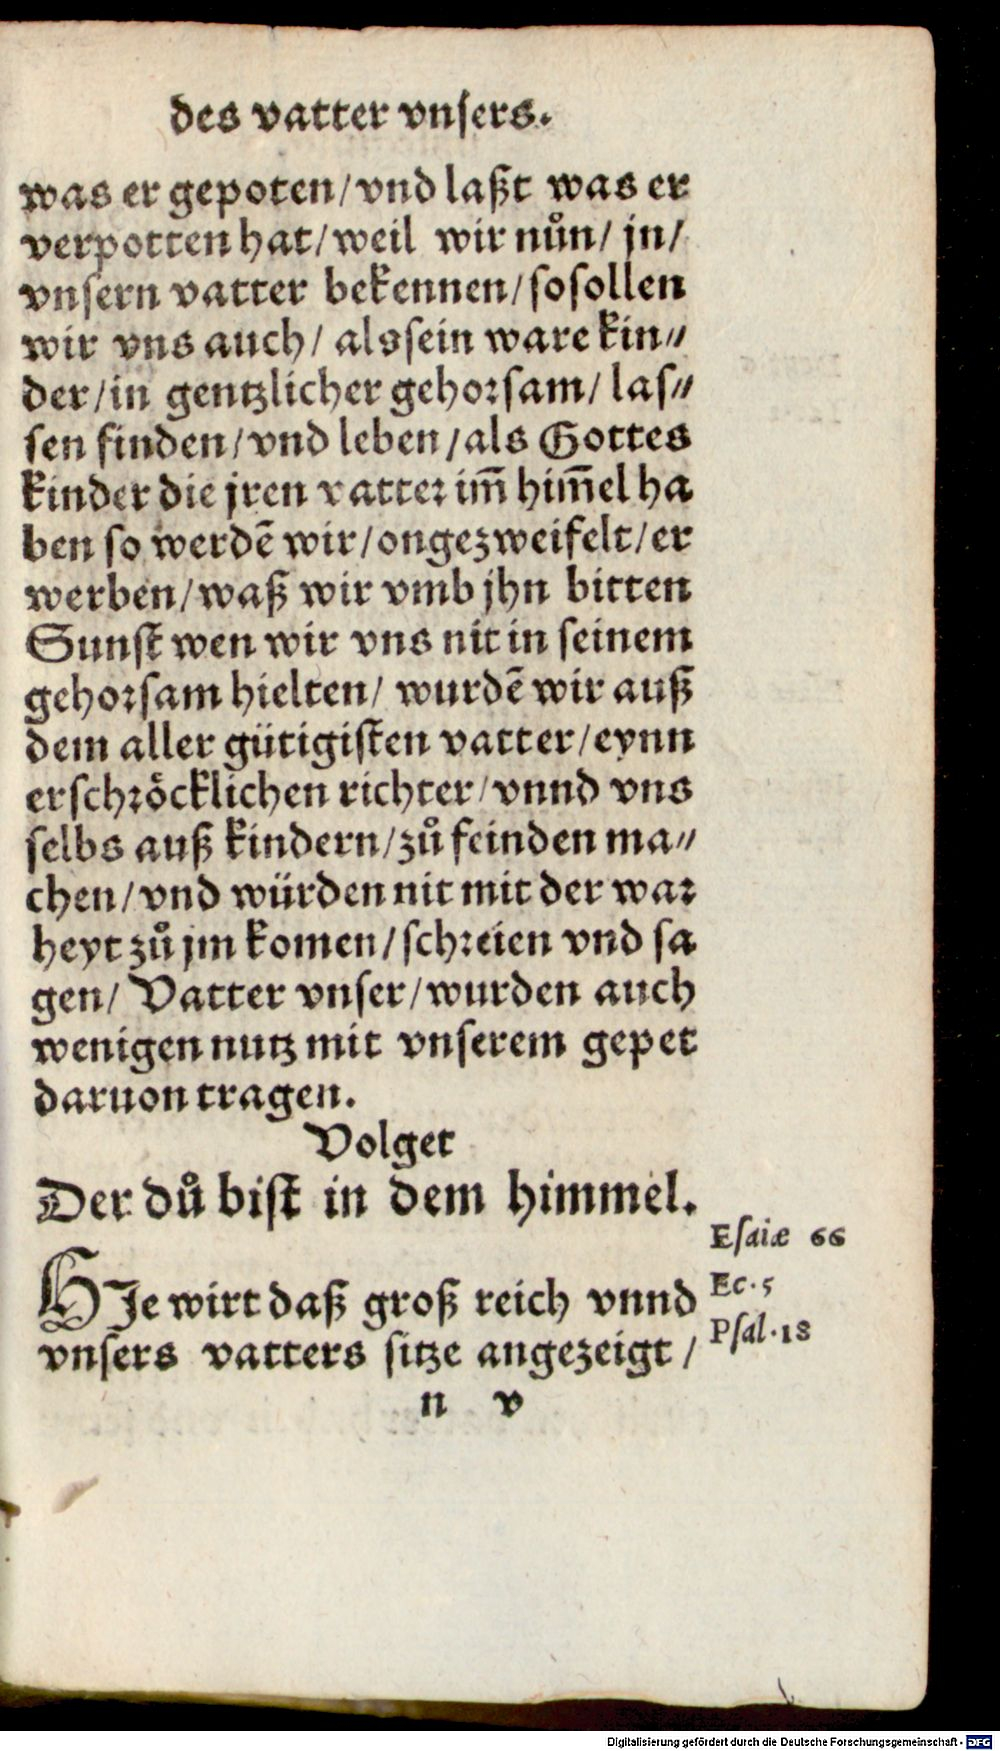 des vatter vnsers.
was er gepoten/ vnd laßt was er
verpotten hat/ weil wir nůn/ jn/
vnsern vatter bekennen/ so sollen
wir vns auch/ als sein ware kin⸗
der/ in gentzlicher gehorsam/ las⸗
sen finden/ vnd leben/ als Gottes
kinder die jren vatter im̄ him̄el ha
ben so werdē wir/ ongezweifelt/ er
werben/ waß wir vmb jhn bitten
Sunst wen wir vns nit in seinem
gehorsam hielten/ wurdē wir auß
dem aller gütigisten vatter/ eynn
erschröcklichen richter/ vnnd vns
selbs auß kindern/ zů feinden ma⸗
chen/ vnd würden nit mit der war
heyt zů jm komen/ schreien vnd sa
gen/ Vatter vnser/ wurden auch
wenigen nutz mit vnserem gepet
daruon tragen.
Volget
Der dů bist in dem himmel.
Esaiæ 66
HJe wirt daß groß reich vnnd
Ec. 5
vnsers vatters sitze angezeigt/
Psal. 18
n v
Digitalisierung gefördert durch die Deutsche Forschungsgemeinschaft - DFG